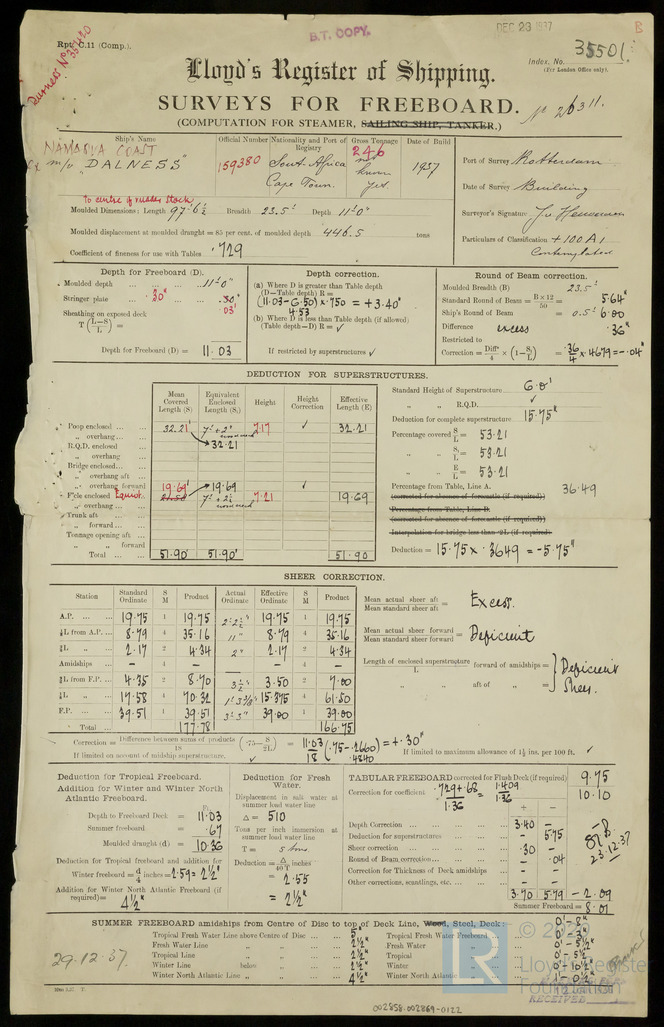 DEC 23 1937
B.T. COPY.
B
Rpt. C.11 (Comp.).
35501.
Index. No.
(For London Office only).
Lloyd's Register of Shipping.
SURVEYS FOR FREEBOARD.
No 26311.
(COMPUTATION FOR STEAMER, SAILING SHIP, TANKER.)
Ship's Name
Official Number
Nationality and Port of Registry
Gross Tonnage
Date of Build
NAMAQUA COAST
Ex m/v "DALNESS"
159380
South Africa
Cape Town.
246
not known yet.
1937
Port of Survey Rotterdam
Date of Survey Building
Surveyor's Signature
Particulars of Classification +100A1
Contemplated
To centre of rudder stock
Moulded Dimensions: Length 97'-6½ Breadth 23.5' Depth 11'-0"
Moulded displacement at moulded draught = 85 per cent. of moulded depth 446.5 tons
Coefficient of fineness for use with Tables .729
Depth for Freeboard (D).
Moulded depth 11'-0"
Stringer plate .30" .30"
.03'
Sheathing on exposed deck
T (L-S/L) =
Depth for Freeboard (D) = 11.03
Depth correction.
(a) Where D is greater than Table depth
(D-Table depth) R =
(11.03-6.50) x .750 = +3.40"
4.53
(b) Where D is less than Table depth (if allowed)
(Table depth-D) R = ✓
If restricted by superstructures ✓
Round of Beam correction.
Moulded Breadth (B) 23.5'
Standard Round of Beam = B×12/50 = 5.64"
Ship's Round of Beam = 0.5' 6.00
Difference excess .36"
Restricted to
Correction = Diffce/4 × (1-S₁/L) = .36/4 x .4679 = -.04"
DEDUCTION FOR SUPERSTRUCTURES.
Mean Covered Length (S)
Equivalent Enclosed Length (S₁)
Height
Height Correction
Effective Length (E)
Poop enclosed 32.21' 7.17 ✓ 32.21
„ overhang
R.Q.D. enclosed 32.21
„ overhang
Bridge enclosed
„ overhang aft
„ overhang forward
F'cle enclosed 19.69' 19.69 7.21 ✓ 19.69
„ overhang
Trunk aft
„ forward
Tonnage opening aft
„ „ forward
Total 51.90' 51.90' 51.90
Standard Height of Superstructure 6.0'
„ „ R.Q.D. ✓
Deduction for complete superstructure 15.75"
Percentage covered S/L = 53.21
„ „ S₁/L = 53.21
„ „ E/L = 53.21
Percentage from Table, Line A. 36.49
(corrected for absence of forecastle (if required))
Percentage from Table, Line B.
(corrected for absence of forecastle (if required))
Interpolation for bridge less than .2L (if required)
Deduction = 15.75 x .3649 = -5.75"
SHEER CORRECTION.
Station
Standard Ordinate
S M
Product
Actual Ordinate
Effective Ordinate
S M
Product
A.P. 19.75 1 19.75 2'-2½" 19.75 1 19.75
⅙L from A.P. 8.79 4 35.16 11" 8.79 4 35.16
⅓L „ 2.17 2 4.34 2" 2.17 2 4.34
Amidships - 4 - - - 4 -
⅓L from F.P. 4.35 2 8.70 3½" 3.50 2 7.00
⅙L „ 17.58 4 70.32 1'-3⅜" 15.375 4 61.50
F.P. 39.51 1 39.51 3'-3" 39.00 1 39.00
Total 177.78 166.75
Mean actual sheer aft / Mean standard sheer aft = Excess.
Mean actual sheer forward / Mean standard sheer forward = Deficient
Length of enclosed superstructure / L forward of amidships =
„ aft of „ =
Deficient Sheer.
Correction = Difference between sums of products / 18 (.75 - S/2L) = 11.03/18 (.75-.2660) = +.30"
.4840
If limited on account of midship superstructure. ✓
If limited to maximum allowance of 1½ ins. per 100 ft. ✓
Deduction for Tropical Freeboard.
Addition for Winter and Winter North Atlantic Freeboard.
Ft.
Depth to Freeboard Deck = 11.03
Summer freeboard = .67
Moulded draught (d) = 10.36
Deduction for Tropical freeboard and addition for
Winter freeboard = d/4 inches = 2.59 = 2½"
Addition for Winter North Atlantic Freeboard (if required) =
4½"
Deduction for Fresh Water.
Displacement in salt water at summer load water line
Δ = 510
Tons per inch immersion at summer load water line
T = 5 tons
Deduction = Δ/40 T inches
= 2.55
= 2½"
TABULAR FREEBOARD corrected for Flush Deck (if required) 9.75
Correction for coefficient .729+.68/1.36 = 1.409/1.36 10.10
+ -
Depth Correction 3.40 -
Deduction for superstructures - 5.75
Sheer correction .30 -
Round of Beam correction - .04
Correction for Thickness of Deck amidships - -
Other corrections, scantlings, etc. - -
3.70 5.79 -2.09
Summer Freeboard = 8.01
23.12.37
SUMMER FREEBOARD amidships from Centre of Disc to top of Deck Line, Wood, Steel, Deck:
0'-8"
Tropical Fresh Water Line above Centre of Disc 5"
Fresh Water Line „ „ 2½"
Tropical Line „ „ 2½"
Winter Line below „ 2½"
Winter North Atlantic Line „ „ 4½"
Tropical Fresh Water Freeboard 0'-3"
Fresh Water „ 0'-5½"
Tropical „ 0'-5½"
Winter „ 0'-10½"
Winter North Atlantic „ 1'-0½"
29.12.37.
© 2020
LR
Lloyd's Register
Foundation
RECEIVED
002858-002869-0122